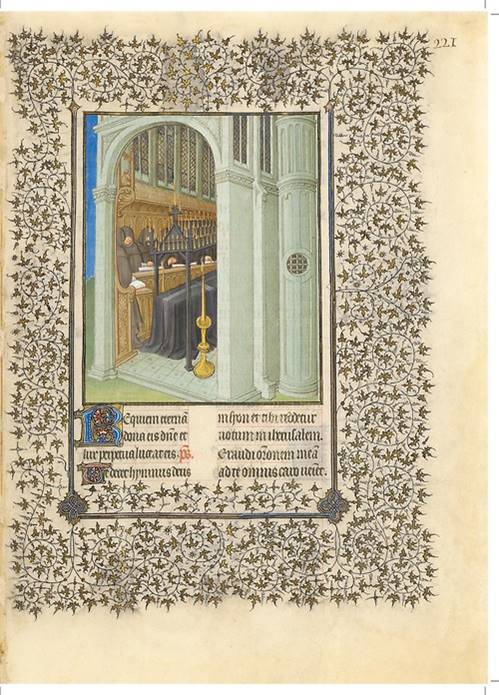 221
Requiem eternā
dona eis dn̄e et
lux perpetua luceat eis. ps.
Te decet hymnus deus
in syon et tibi reddetur
uotum in iherusalem.
Exaudi orōnem meā
ad te omnis caro ueniet.